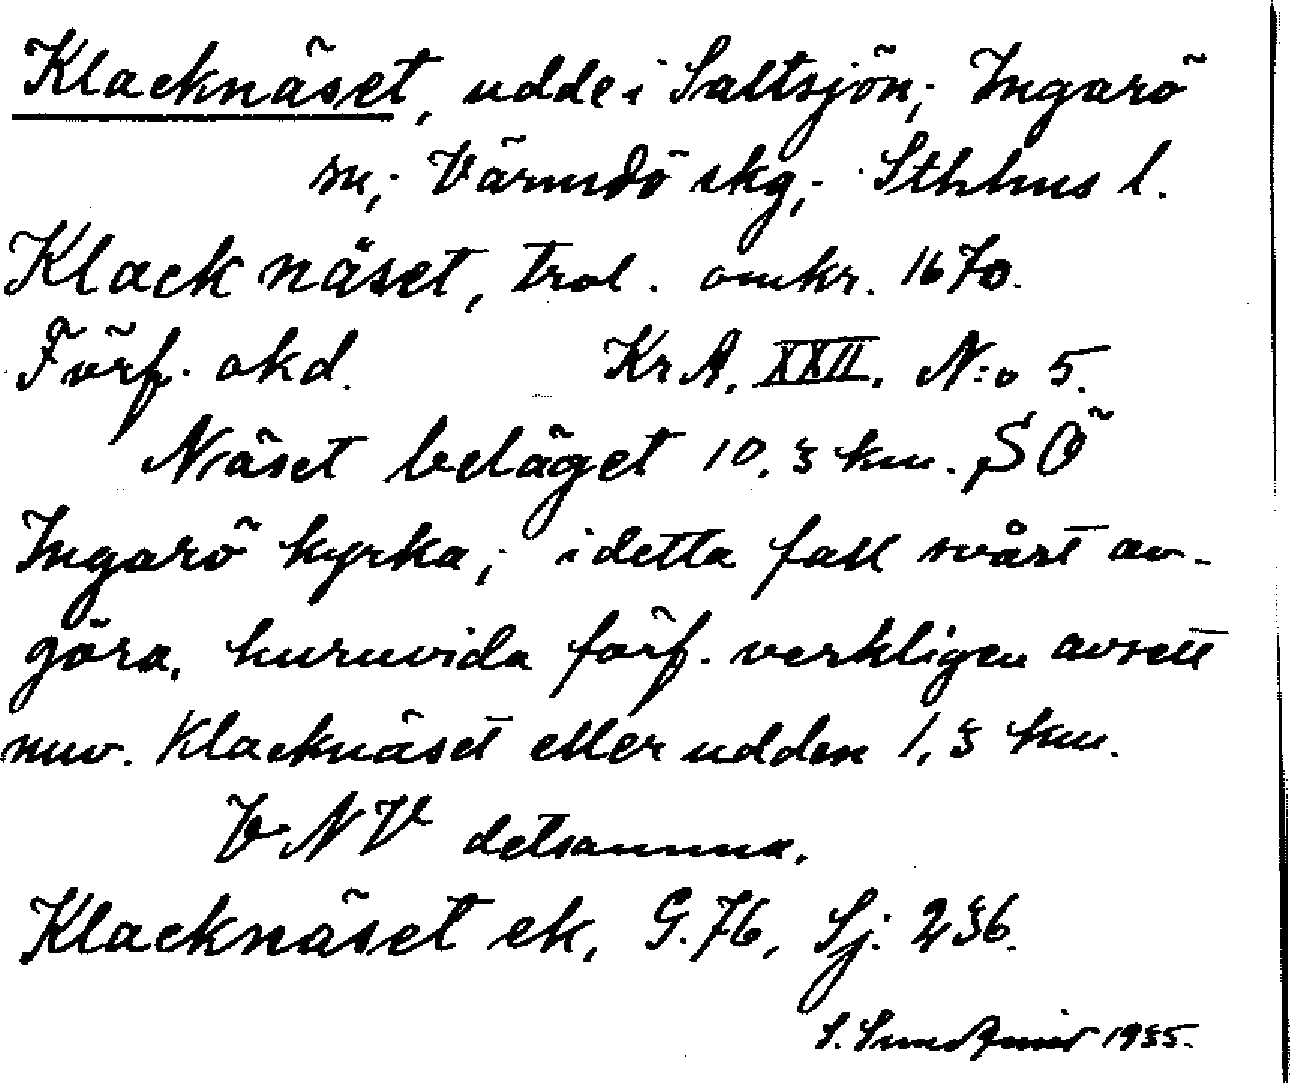 Klacknäset, udde i Saltsjön; Ingarö
sn; Värmdö skg; Sthlms l.
Klack näset, trol. omkr. 1670.
Förf. okd. KrA. XXII. N:o 5.
Näset beläget 10,3 km. SÖ
Ingarö kyrka; i detta fall svårt av-
göra, huruvida förf. verkligen avsett
nuv. Klacknäset eller udden 1,3 km.
VNV detsamma.
Klacknäset ek, G.76, Sj. 236.
S. 1935.